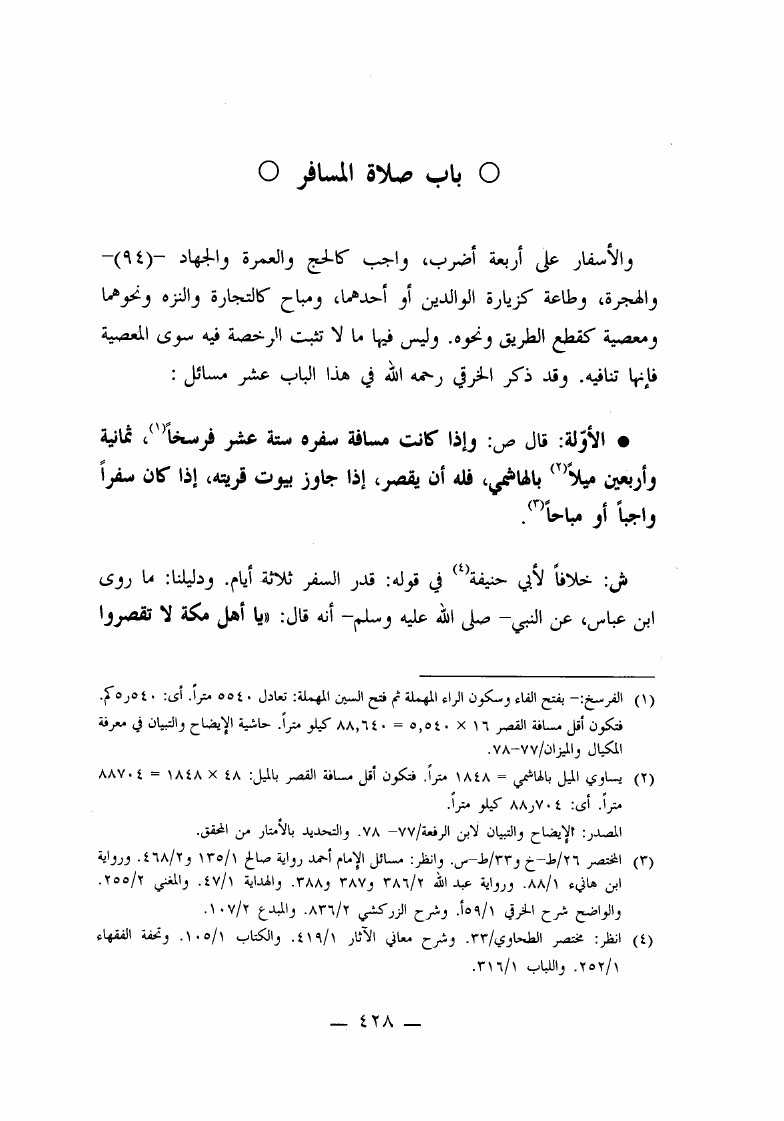 ○ باب صلاة المسافر ○
والأسفار على أربعة أضرب، واجب كالحج والعمرة والجهاد –(٩٤)–
والهجرة، وطاعة كزيارة الوالدين أو أحدهما، ومباح كالتجارة والنزه ونحوهما
ومعصية كقطع الطريق ونحوه. وليس فيها ما لا تثبت الرخصة فيه سوى المعصية
فإنها تنافيه. وقد ذكر الخرقي رحمه الله في هذا الباب عشر مسائل :
● الأوّلة: قال ص: وإذا كانت مسافة سفره ستة عشر فرسخاً(١)، ثمانية
وأربعين ميلاً(٢) بالهاشمي، فله أن يقصر، إذا جاوز بيوت قريته، إذا كان سفراً
واجباً أو مباحاً(٣).
ش: خلافاً لأبي حنيفة(٤) في قوله: قدر السفر ثلاثة أيام. ودليلنا: ما روى
ابن عباس، عن النبي– صلى الله عليه وسلم– أنه قال: «يا أهل مكة لا تقصروا
(١) الفرسخ:– بفتح الفاء وسكون الراء المهملة ثم فتح السين المهملة: تعادل ٥٥٤٠ متراً. أى: ٥٤٠ر٥كم.
فتكون أقل مسافة القصر ١٦ × ٥,٥٤٠ = ٨٨,٦٤٠ كيلو متراً. حاشية الإيضاح والتبيان في معرفة
المكيال والميزان/٧٧–٧٨.
(٢) يساوي الميل بالهاشمي = ١٨٤٨ متراً. فتكون أقل مسافة القصر بالميل: ٤٨ × ١٨٤٨ = ٨٨٧٠٤
متراً. أى: ٧٠٤ر٨٨ كيلو متراً.
المصدر: الإيضاح والتبيان لابن الرفعة/٧٧– ٧٨. والتحديد بالأمتار من المحقق.
(٣) المختصر ٢٦/ط–خ و٣٣/ط–س. وانظر: مسائل الإمام أحمد رواية صالح ١٣٥/١ و٤٦٨/٢. ورواية
ابن هانيء ٨٨/١. ورواية عبد الله ٣٨٦/٢ و٣٨٧ و٣٨٨. والهداية ٤٧/١. والمغني ٢٥٥/٢.
والواضح شرح الخرقي ٥٩/١أ. وشرح الزركشي ٨٣٦/٢. والمبدع ١٠٧/٢.
(٤) انظر: مختصر الطحاوي/٣٣. وشرح معاني الآثار ٤١٩/١. والكتاب ١٠٥/١. وتحفة الفقهاء
٢٥٢/١. واللباب ٣١٦/١.
— ٤٢٨ —